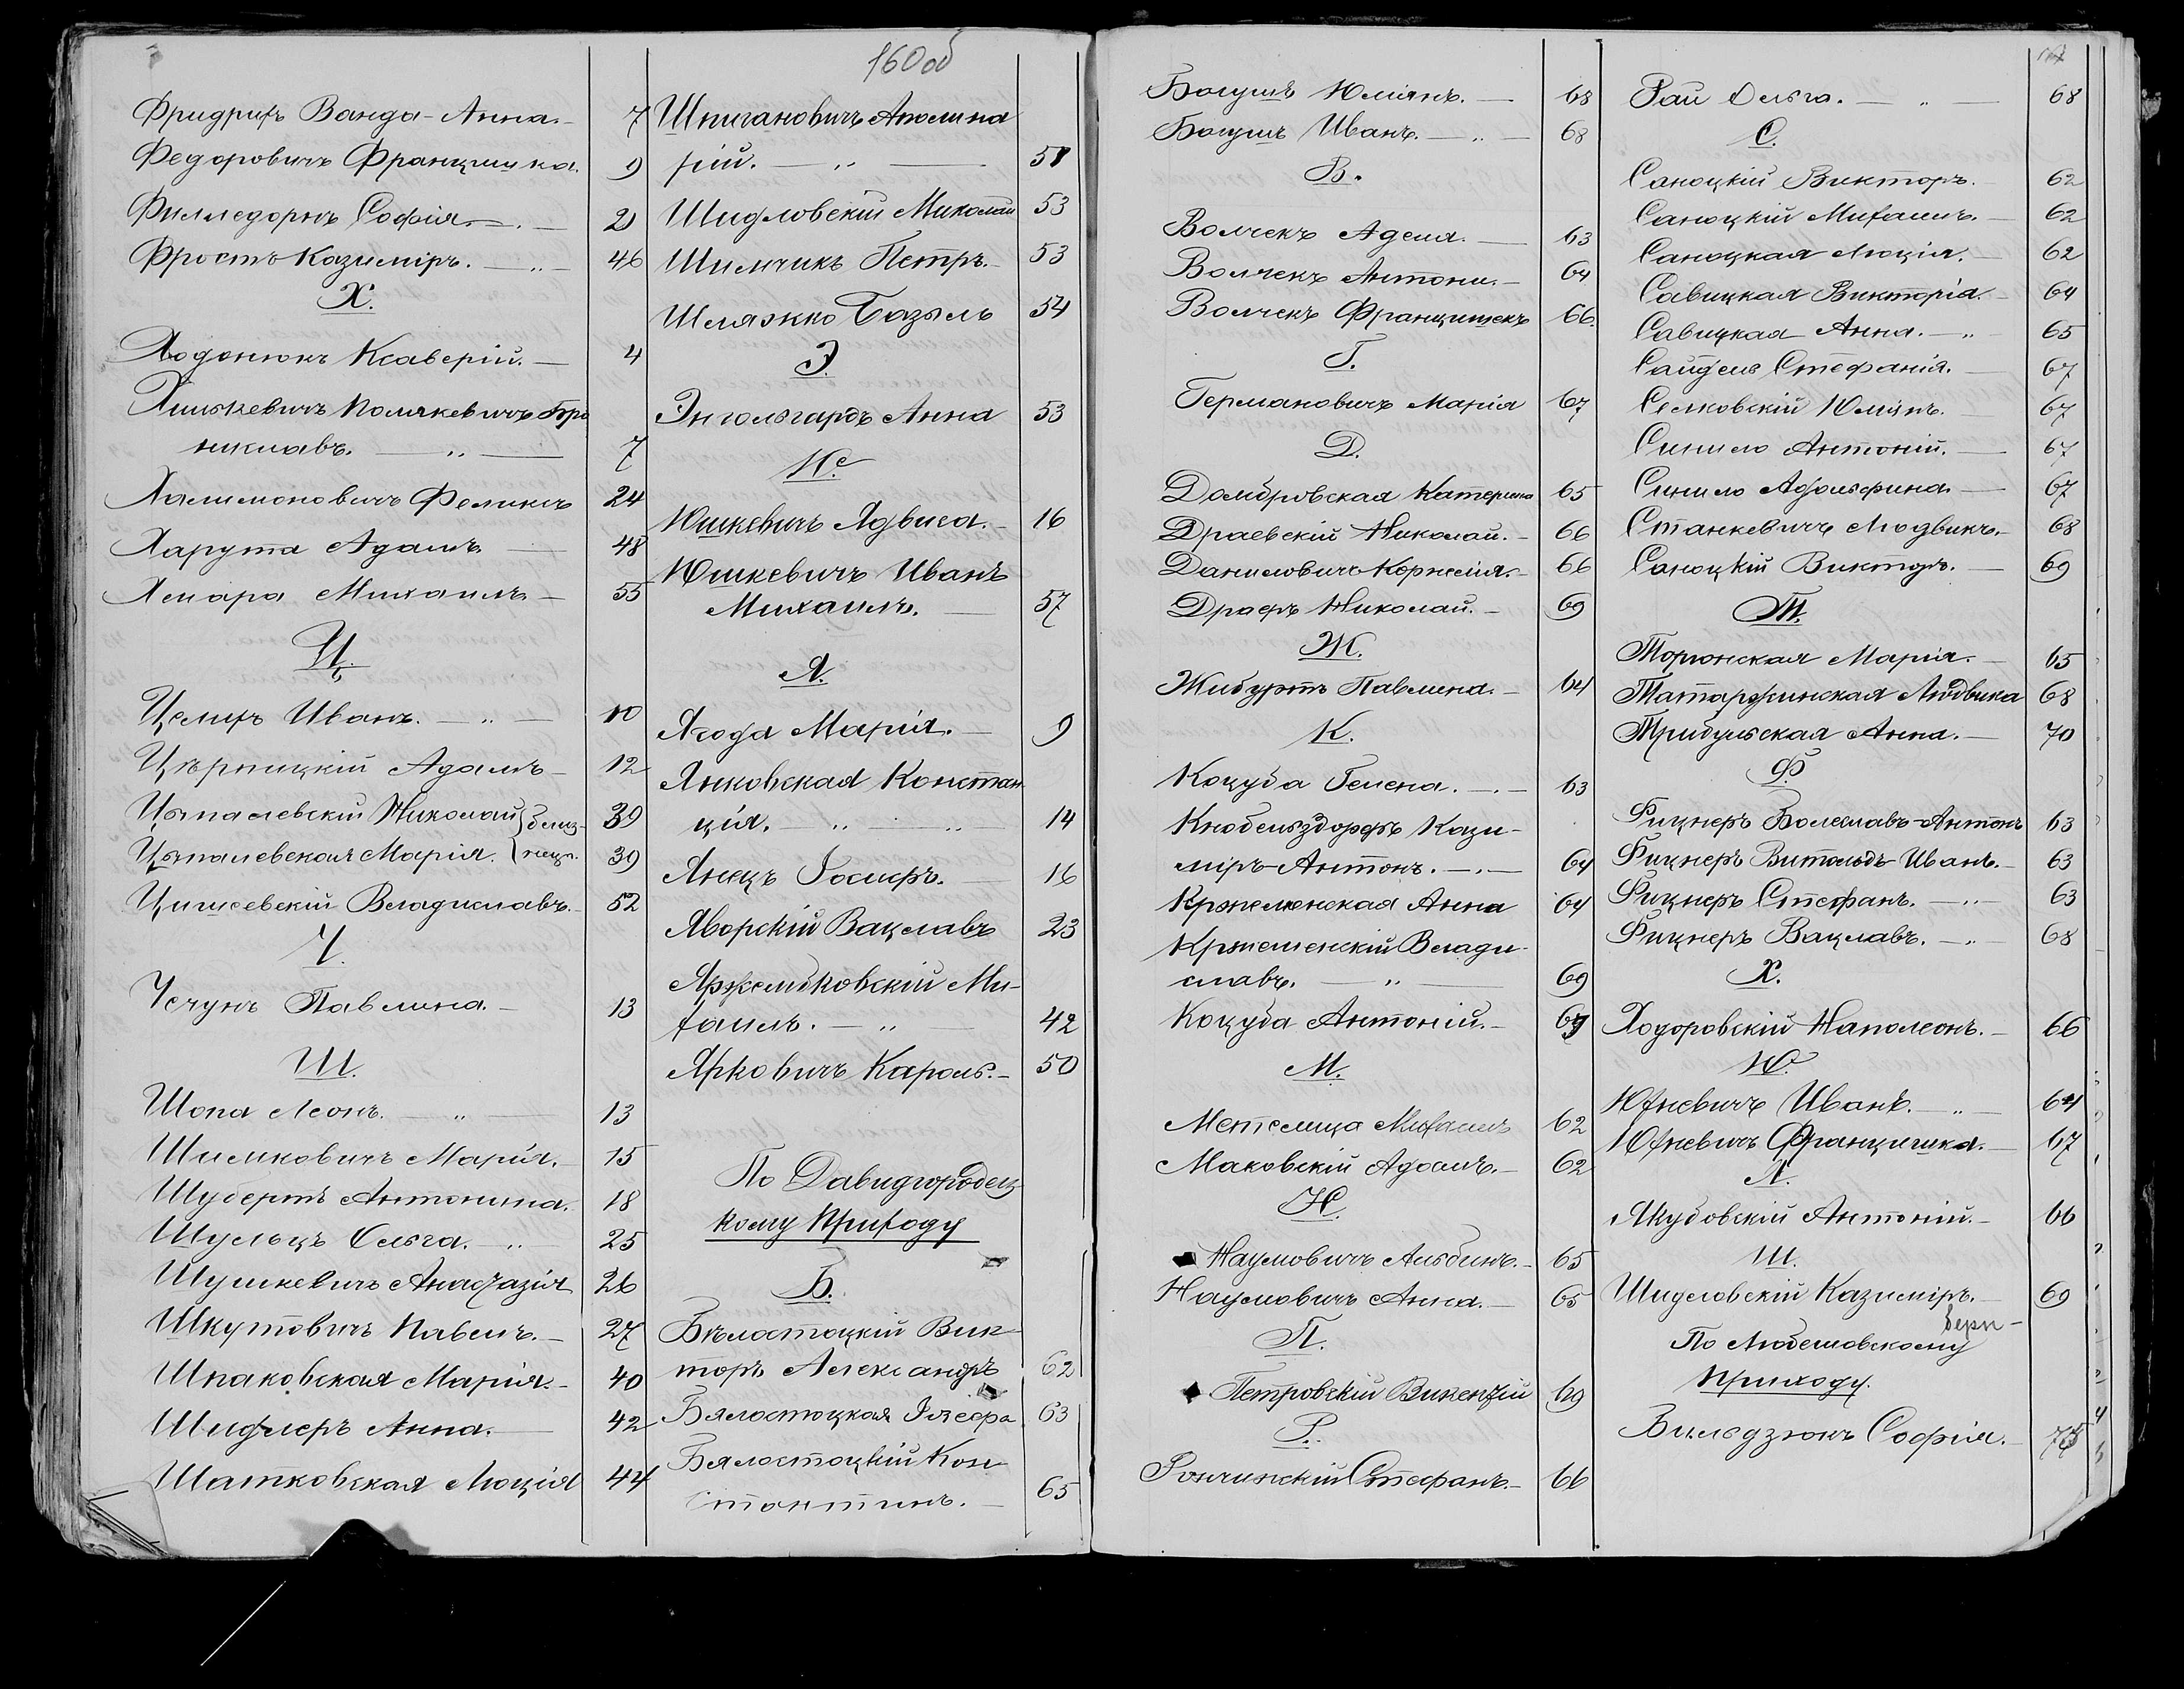 160об
Фридрихъ Ванда-Анна. 7
Федоровичъ Францишка. 9
Филледорнъ Софія. 21
Фростъ Казиміръ. 46
Х.
Ходонюкъ Ксаверій. 4
Хмызкевичъ Полякевичъ Бро
ниславъ. 7
Халимоновичъ Феликсъ 24
Харута Адамъ 48
Хмара Михаилъ 55
Ц.
Целихъ Иванъ. 10
Цѣрпицкій Адамъ 12
Цыпалевскій Николай } близ- 39
Цыпалевская Марія. } нецы. 39
Цишевскій Владиславъ. 52
Ч.
Чечунъ Павлина. 13
Ш.
Шопа Леонъ. 13
Шимковичъ Марія. 15
Шубертъ Антонина. 18
Шульцъ Ольга. 25
Шушкевичъ Анастазія 26
Шкутовичъ Павелъ. 27
Шпаковская Марія. 40
Шифлеръ Анна. 42
Шатковская Люція 44
Шпигановичъ Аполина
рій. 51
Шидловскій Миколай 53
Шимчикъ Петръ. 53
Шляжко Базыль 54
Э.
Энгольгардъ Анна 53
Ю.
Юшкевичъ Ядвига. 16
Юшкевичъ Иванъ
Михаилъ. 57
Я.
Ягода Марія. 9
Янковская Констан
ція. 14
Янецъ Госперъ. 16
Яворскій Вацлавъ 23
Яржембковскій Ми-
хаилъ. 42
Ярковичъ Кароль. 50
По Давидгородец
кому приходу
Б.
Бѣлостоцкій Вик
торъ Александръ 62
Бялостоцкая Юзефа 63
Бялостоцкій Кон
стантинъ. 65
Богушъ Юліянъ. 68
Богушъ Иванъ. 68
В.
Волчекъ Аделя. 63
Волчекъ Антони. 64
Волчекъ Францишекъ 66.
Г.
Германовичъ Марія 67
Д.
Домбровская Катерина 65
Драевскій Николай. 66
Даниловичъ Корнелія. 66
Драфъ Николай. 69
Ж.
Жибуртъ Павлина. 64
К.
Коцуба Гелена. 63
Кнобельздорфъ Кази-
міръ-Антонъ. 64
Кржеменская Анна 64
Кржеменскій Влади
славъ. 69
Коцуба Антоній. 69
М.
Метелица Михаилъ 62
Маковскій Адамъ. 62
Н.
Наумовичъ Альбинъ. 65
Наумовичъ Анна. 65
П.
Петровскій Викентій 69
Р.
Рончинскій Стефанъ. 66
Рай Ольга. 68
С.
Саноцкій Викторъ. 62
Саноцкій Михаилъ. 62
Саноцкая Люція. 62
Савицкая Викторія. 64
Савицкая Анна. 65
Сайдель Стефанія. 67
Селковскій Юліянъ. 67
Синило Антоній. 67
Синило Адольфина. 67
Станкевичъ Людвикъ. 68
Саноцкій Викторъ. 69
Т.
Торонская Марія. 65
Татаржинская Людвика 68
Трибульская Анна. 70
Ф
Фицнеръ Болеславъ-Антонъ 63
Фицнеръ Витольдъ Иванъ. 63
Фицнеръ Стефанъ. 63
Фицнеръ Вацлавъ. 68
Х.
Ходоровскій Наполеонъ. 66
Ю
Юхневичъ Иванъ. 64
Юхневичъ Францишка. 67
Я.
Якубовскій Антоній. 66
Ш.
Шидловскій Казиміръ. 69
По Любешовскому
приходу.
Вильдзюкъ Софія.